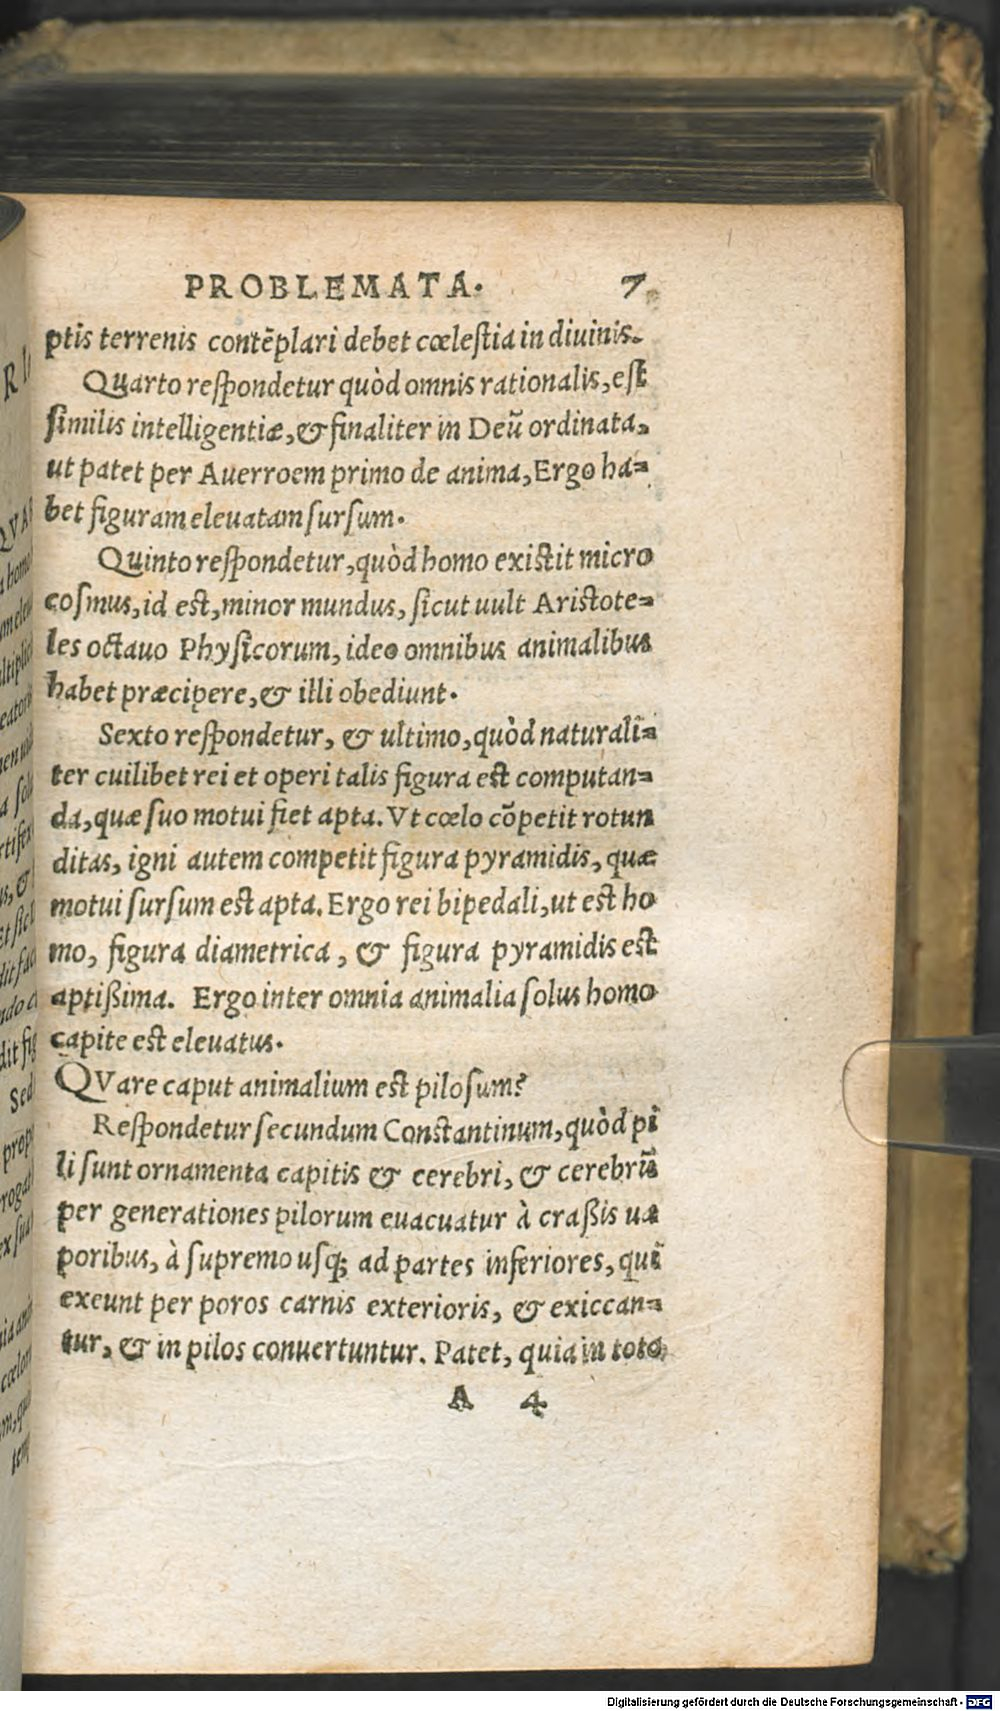 PROBLEMATA. 7
ptis terrenis contēplari debet cœleſtia in diuinis.
Quarto reſpondetur quòd omnis rationalis, eſt
ſimilis intelligentiæ, & finaliter in Deū ordinata,
ut patet per Auerroem primo de anima, Ergo ha=
bet figuram eleuatam ſurſum.
Quinto reſpondetur, quòd homo exiſtit micro
coſmus, id eſt, minor mundus, ſicut uult Ariſtote=
les octauo Phyſicorum, ideo omnibus animalibus
habet præcipere, & illi obediunt.
Sexto reſpondetur, & ultimo, quòd naturali=
ter cuilibet rei et operi talis figura eſt computan=
da, quæ ſuo motui fiet apta. Vt cœlo cōpetit rotun
ditas, igni autem competit figura pyramidis, quæ
motui ſurſum eſt apta. Ergo rei bipedali, ut eſt ho
mo, figura diametrica, & figura pyramidis eſt
aptißima. Ergo inter omnia animalia ſolus homo
capite eſt eleuatus.
QVare caput animalium eſt piloſum?
Reſpondetur ſecundum Conſtantinum, quòd pi
li ſunt ornamenta capitis & cerebri, & cerebrū
per generationes pilorum euacuatur à craßis ua
poribus, à ſupremo uſq; ad partes inferiores, qui
exeunt per poros carnis exterioris, & exiccan=
tur, & in pilos conuertuntur. Patet, quia in toto
A 4
Digitalisierung gefördert durch die Deutsche Forschungsgemeinschaft - DFG